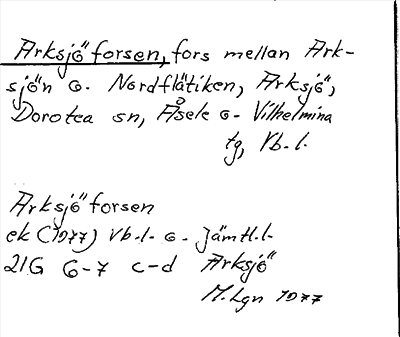 Arksjöforsen, fors mellan Ark-
sjön o. Nordflätiken, Arksjö,
Dorotea sn, Åsele o. Vilhelmina
tg, Vb.l.
Arksjöforsen
ek (1977) Vb.l. o. Jämtl.l.
21G 6-7 c-d Arksjö
M.Lgn 1977